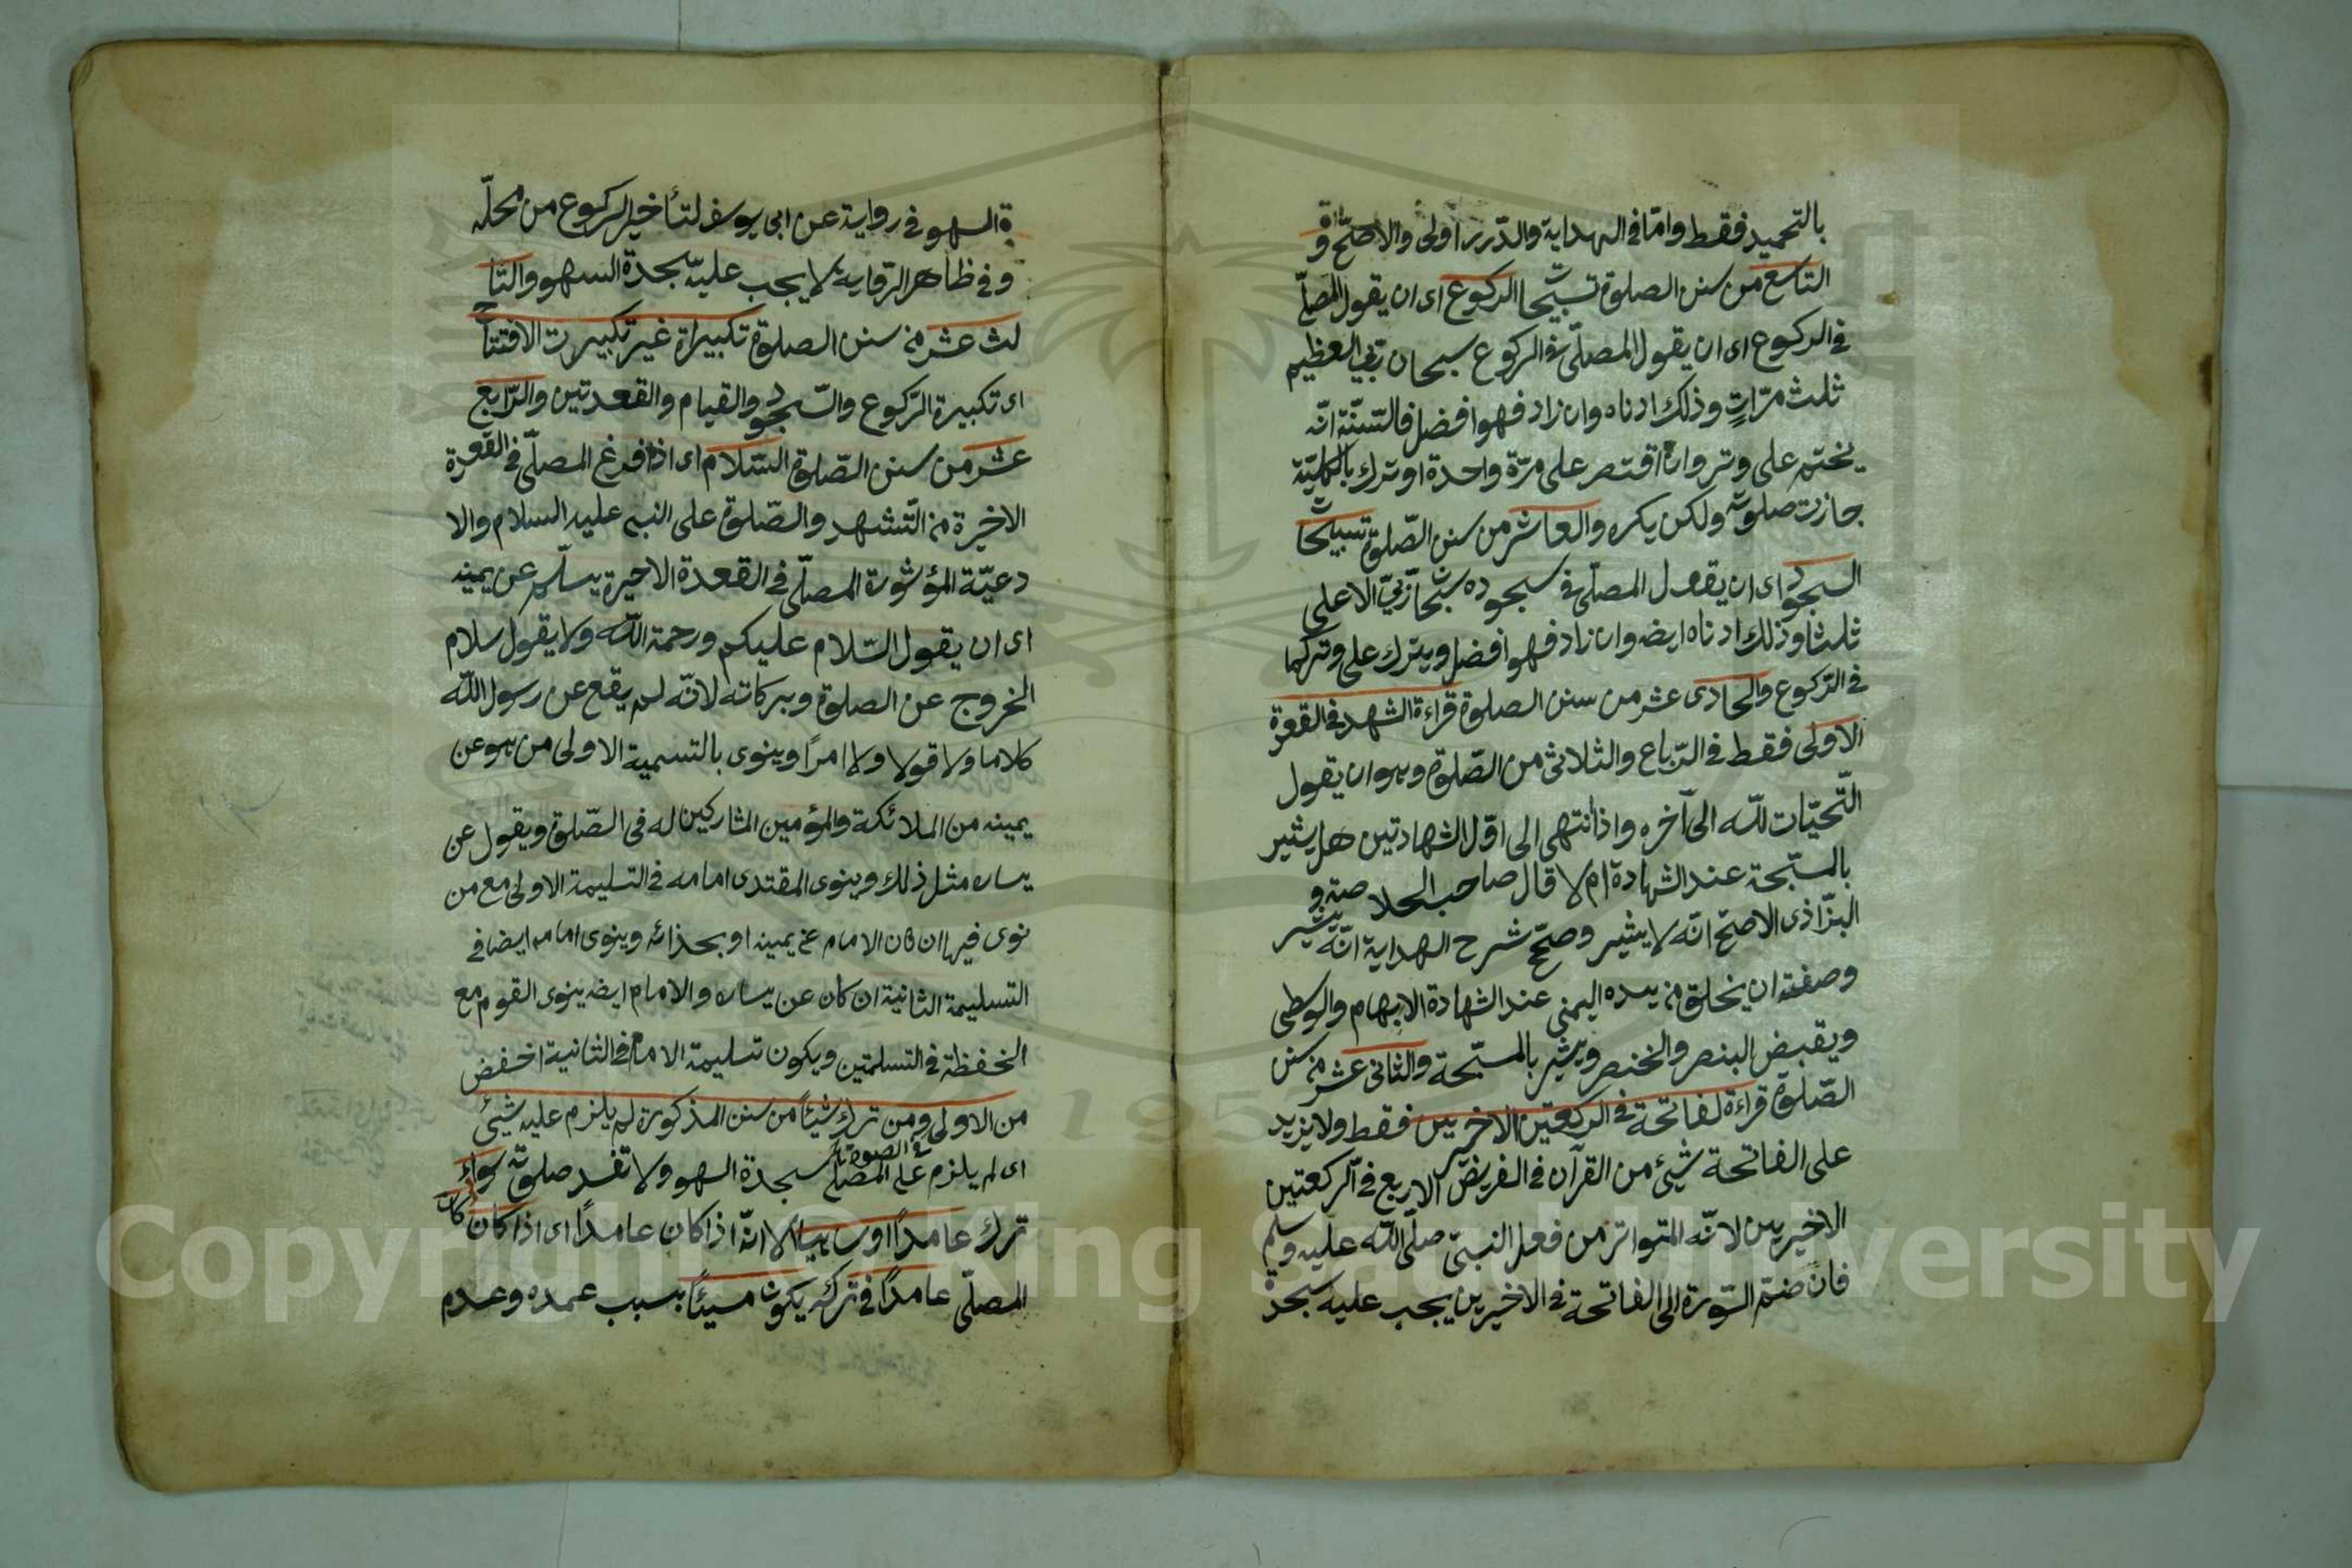 بالتحميد فقط واما فى الهداية والدرر اولى والاصح و
التاسع من سنن الصلوة تسبيحا الركوع اى ان يقول المصلّى
فى الركوع اى ان يقول المصلّى فى الركوع سبحان ربّى العظيم
ثلث مرّاتٍ وذلك ادناه وان زاد فهو افضل فالسّنّة انّه
يختم على وتر وان اقتصر على مرّة واحدة او ترك بالكليّة
جازت صلوته ولكن يكره والعاشر من سنن الصّلوة تسبيحا
السجود اى ان يقول المصلّى فى سجوده سبحان ربّى الاعلى
ثلثا وذلك ادناه ايضه وان زاد فهو افضل ويترك على وتر كما
فى الرّكوع والحادى عشر من سنن الصلوة قراءة الشهد فى القعدة
الاولى فقط فى الرّباع والثلاثى من الصّلوة وهو ان يقول
التّحيّات للّه الى آخره واذا انتهى الى اوّل الشهادتين هل يشير
بالسبّحة عند الشهادة ام لا قال صاحب الخلاصة و
البزّاذى الاصحّ انّه لا يشير وصحّح شرح الهداية انّه يشير
وصفته ان يحلق من يده اليمنى عند الشهادة الابهام والوسطى
ويقبض البنصر والخنصر ويشير بالمسبّحة والثانى عشر من سنن
الصّلوة قراءة لفاتحة فى الركعتين الاخريين فقط ولا يزيد
على الفاتحة شيئ من القرآن فى الفريضة الاربع فى الركعتين
الاخيرين لانّه المتواتر من فعل النبىّ صلّى اللّه عليه وسلم
فان ضمّ السّورة الى الفاتحة فى الاخيرين يجب عليه سجدة
ة السهو فى رواية عن ابى يوسف لتأخير الركوع من محلّه
وفى ظاهر الرّواية لا يجب عليه سجدة السهو والثا
لث عشر من سنن الصلوة تكبيراة غير تكبيرت الافتتاح
اى تكبيرة الرّكوع والسّجود والقيام والقعدتين والرّابع
عشر من سنن الصّلوة السّلام اى اذا فرغ المصلّى فى القعدة
الاخيرة من التّشهد والصّلوة على النبى عليه السلام والا
دعيّة المؤشورة المصلّى فى القعدة الاخيرة يسلّم عن يمينه
اى ان يقول السّلام عليكم ورحمة اللّه ولا يقول سلام
الخروج عن الصلوة وبركاته لانّه لم يقع عن رسول اللّه
كلاما ولا قولا ولا امرًا وينوى بالتسمية الاولى من هو عن
يمينه من الملائكة والمؤمين المشاركين له فى الصّلوة ويقول عن
يساره مثل ذلك وينوى المقتدى امامه فى التسليمة الاولى مع من
نوى فيها ان كان الامام عن يمينه او بحذائه وينوى امامه ايضا فى
التسليمة الثانية ان كان عن يساره والامام ايضه ينوى القوم مع
الحفظة فى التسلمتين ويكون تسليمة الامام فى الثانية اخفض
من الاولى ومن ترك شيئاً من سنن المذكورة لم يلزم عليه شيئ
اى لم يلزم على المصلّى سجدة السهو ولا تفسد صلوته سواء كان
ترك عامدًا او ساهيا الا انّه اذا كان عامدًا اى اذا كان
المصلّى عامدًا فى تركه يكون مسيئًا بسبب عمده وعدم